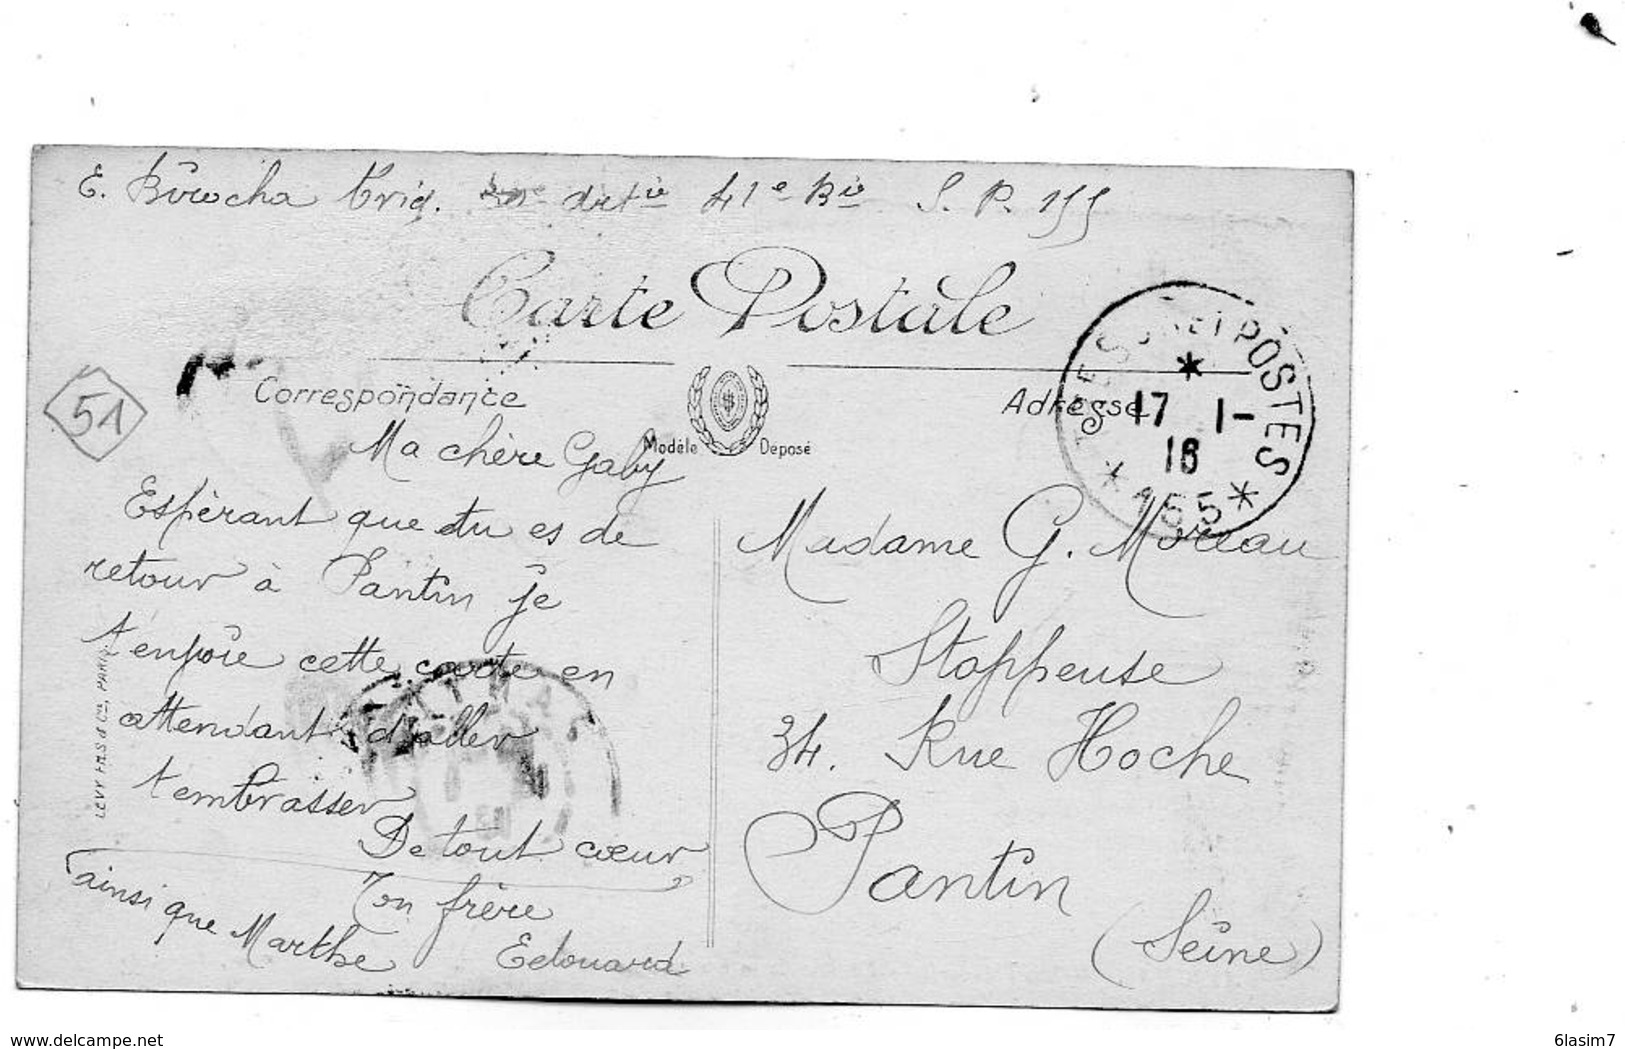 E. Birocha Brig. d'artie 41e Bie S. P. 155
Carte Postale
Correspondance
Adresse
Modèle Déposé
POSTES
17 1-
16
* 155 *
51
Ma chère Gaby
Espérant que tu es de
retour à Pantin je
t'envoie cette carte en
attendant d'aller
t'embrasser
De tout cœur
Ton frère
Edouard
ainsi que Marthe
Madame G. Moreau
Stoppeuse
34. Rue Hoche
Pantin
(Seine)
LEVY FILS & Cie, PARIS
www.delcampe.net
6lasim7